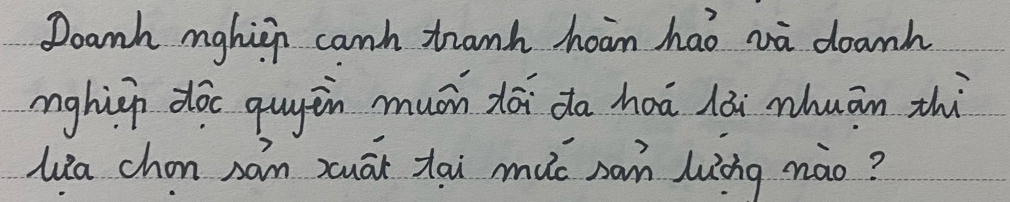 Doanh nghiệp cạnh tranh hoàn hảo và doanh
nghiệp độc quyền muốn tối đa hoá lợi nhuận thì
lựa chọn sản xuất tại mức sản lượng nào ?